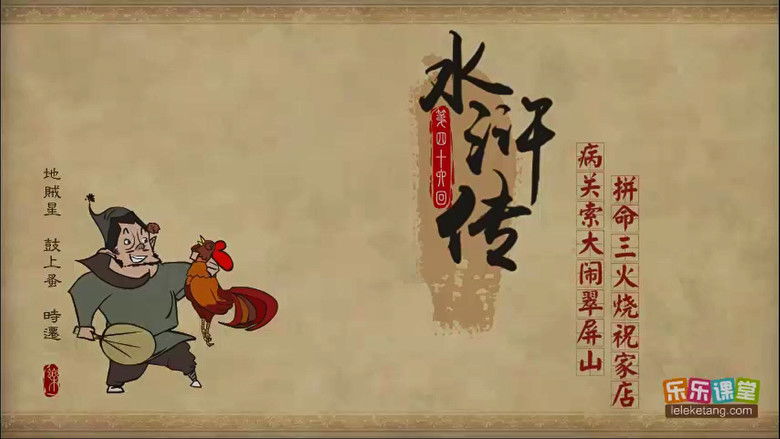 水浒传
第四十六回
病关索大闹翠屏山
拼命三火烧祝家店
地賊星 鼓上蚤 時遷
乐乐课堂
leleketang.com